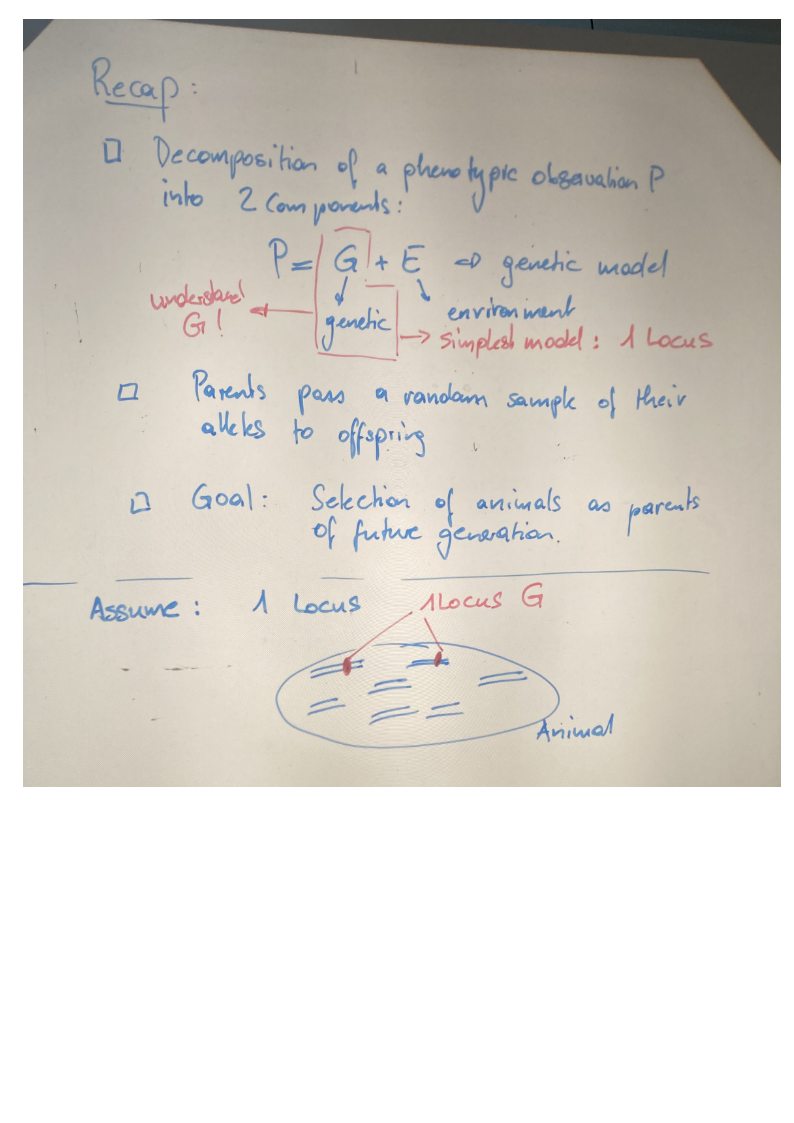 Recap:
□ Decomposition of a phenotypic observation P
into 2 Components:
P = G + E ⇨ genetic model
understand
G!
genetic
environment
simplest model: 1 Locus
□ Parents pass a random sample of their
alleles to offspring
□ Goal: Selection of animals as parents
of future generation.
Assume: 1 Locus
1 Locus G
Animal